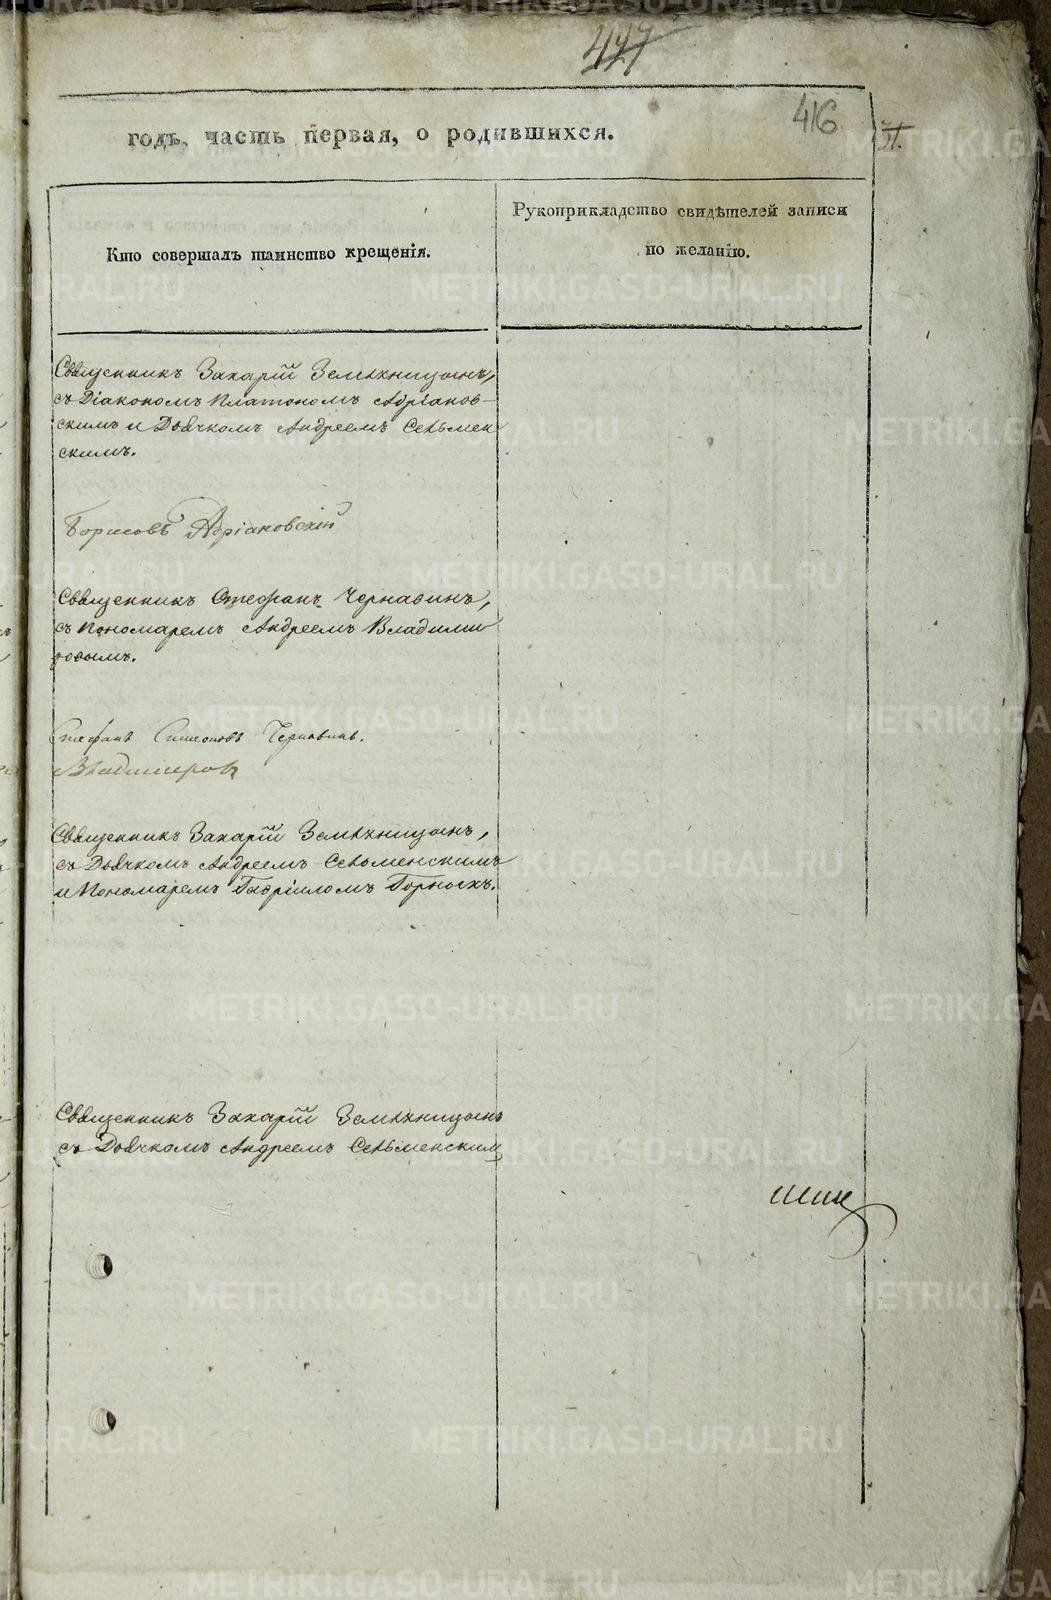 427
416
годъ, часть первая, о родившихся.
Кто совершалъ таинство крещенія.
Рукоприкладство свидѣтелей записи
по желанію.
Священникъ Захарій Земляницынъ,
съ Діакономъ Платономъ Адріанов-
скимъ и Дьячкомъ Андреемъ Сельмен
скимъ.
Борисовъ Адріановскій
Священникъ Стефанъ Чернавинъ,
съ Пономаремъ Андреемъ Владими
ровымъ.
Стефанъ Симеоновъ Чернавинъ.
Владимировъ
Священникъ Захарій Земляницынъ,
съ Дьячкомъ Андреемъ Сельменскимъ
и Пономаремъ Гавріиломъ Горныхъ.
Священникъ Захарій Земляницынъ
съ Дьячкомъ Андреемъ Сельменским
METRIKI.GASO-URAL.RU